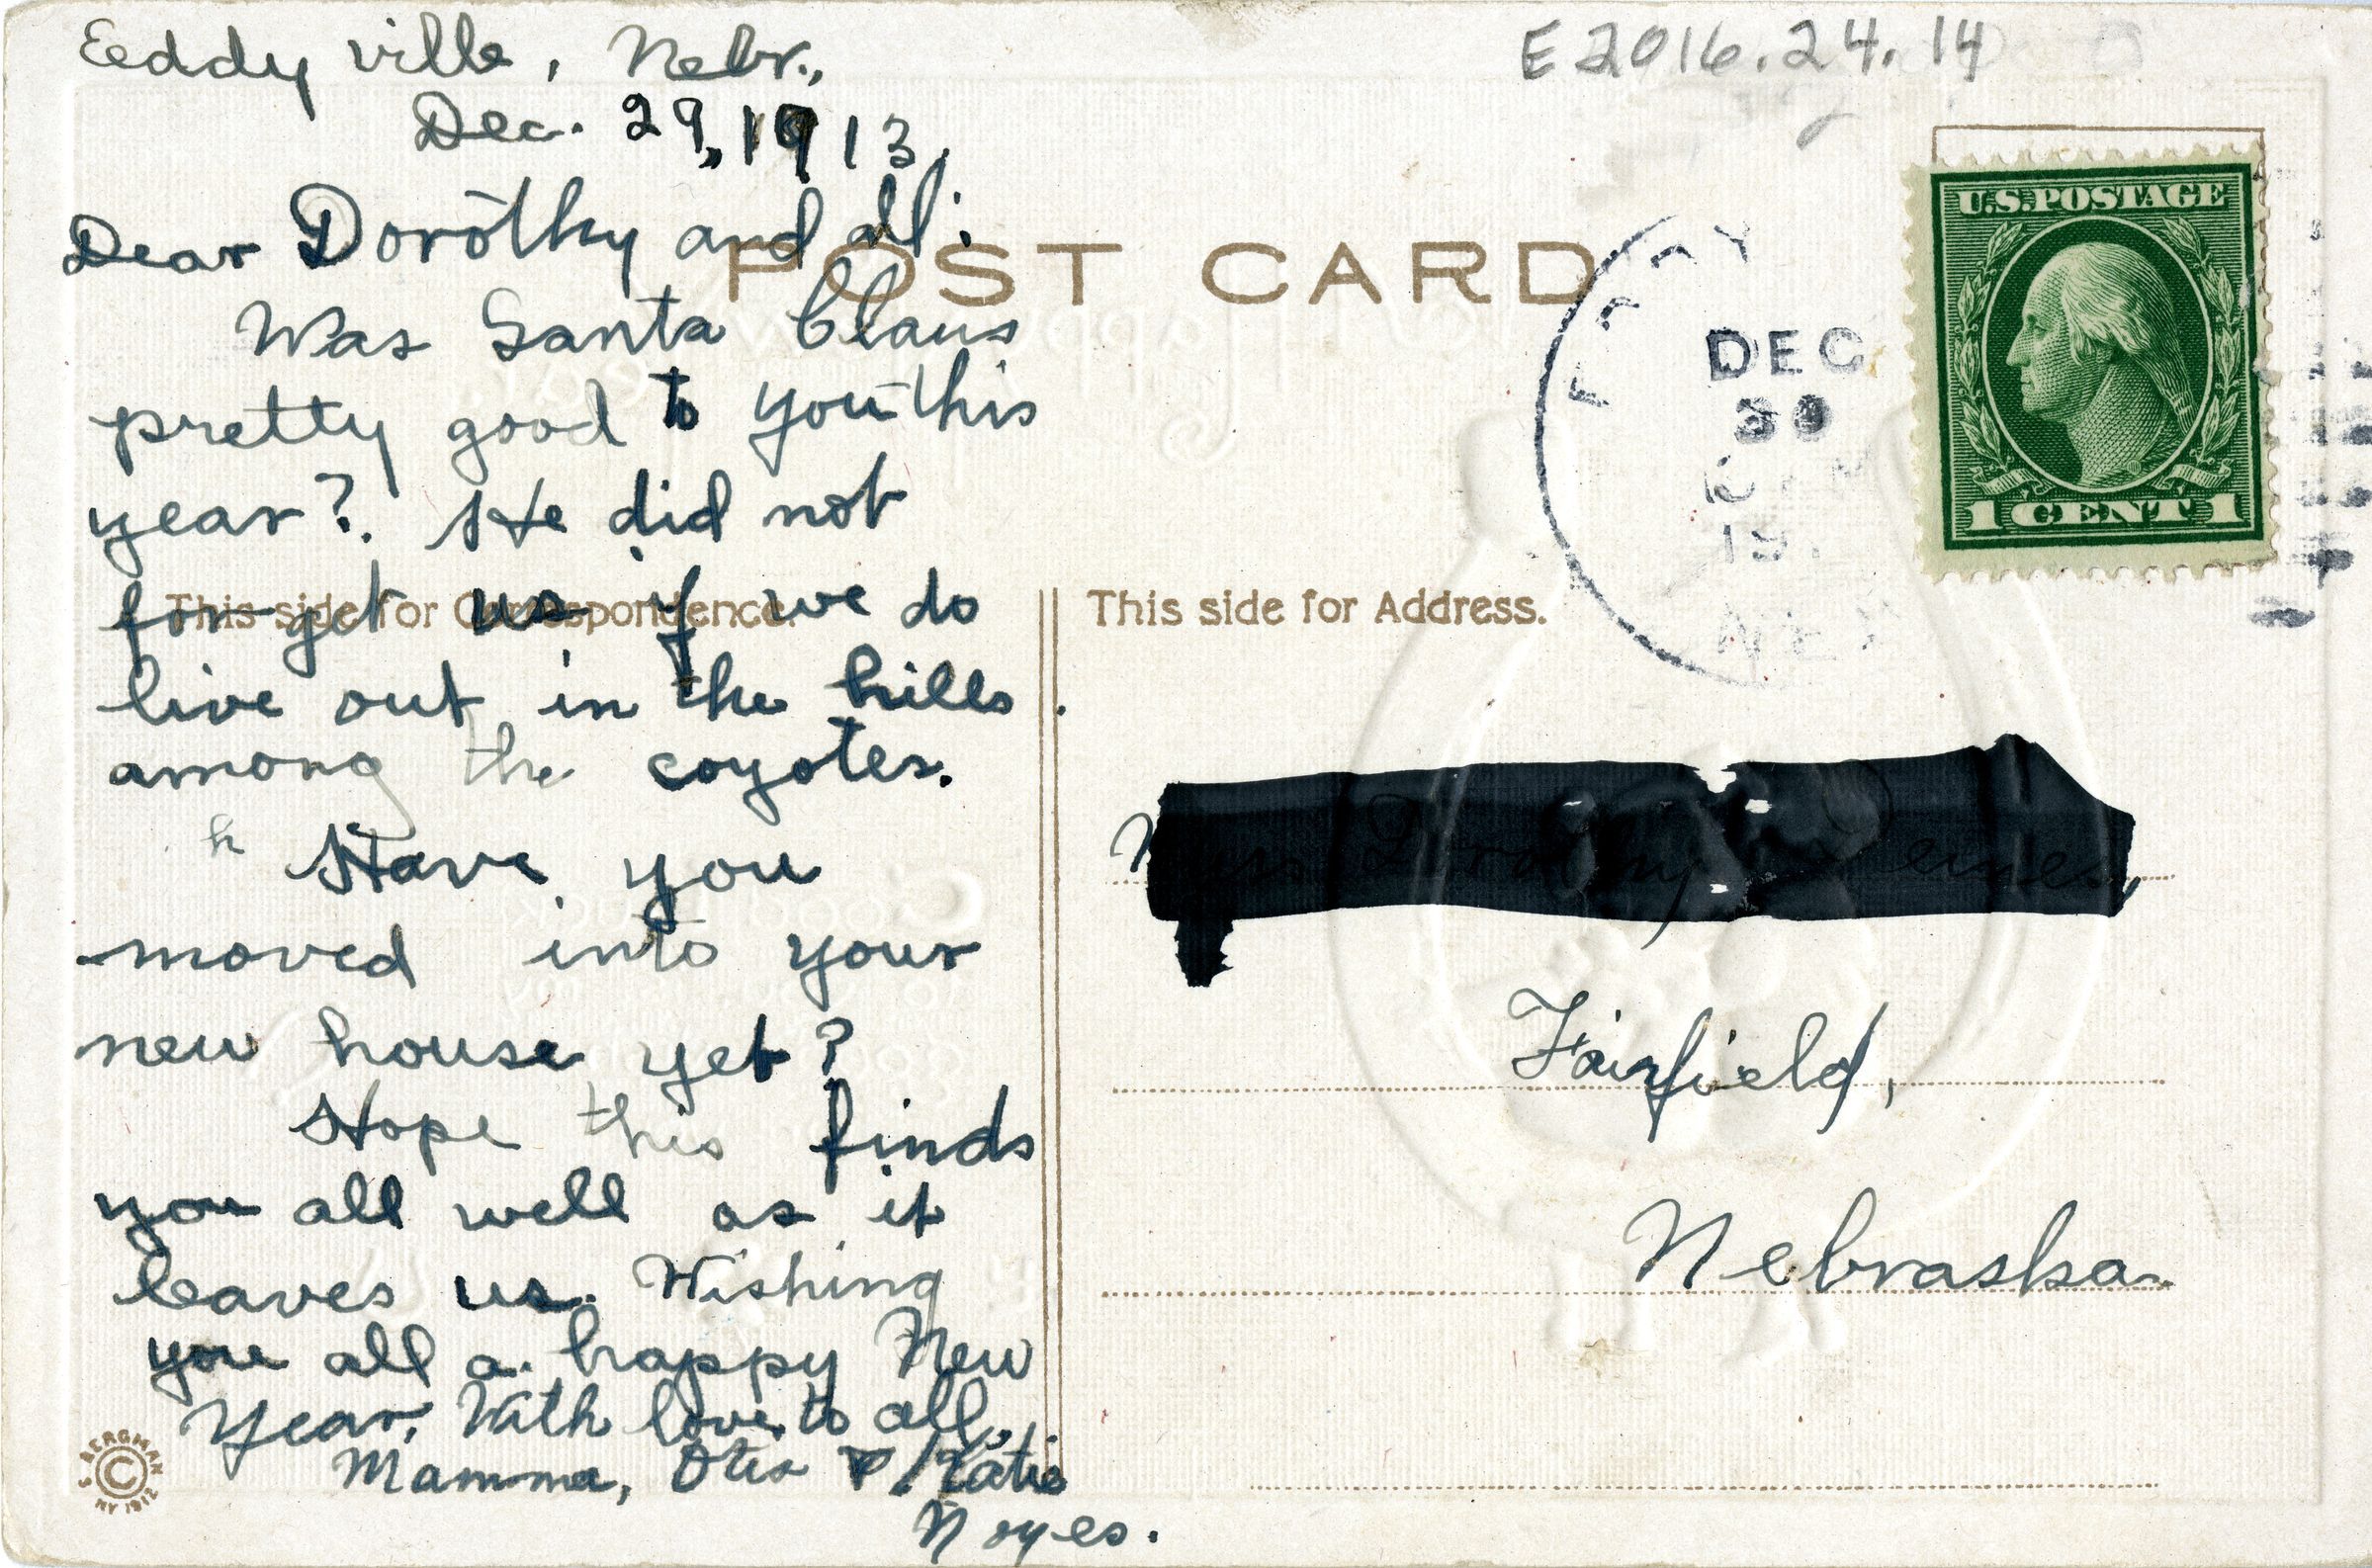 Eeddyville, Nebr.,
Dec. 29, 1913.
Dear Dorothy and all:
Was Santa Claus
pretty good to you this
year? He did not
forget us if we do
live out in the hills
among the coyotes.
h Have you
moved into your
new house yet?
Hope this finds
you all well as it
leaves us. Wishing
you all a happy New
Year. With love to all,
Mamma, Otis & Katie
Noyes.
E2016.24.14
POST CARD
U.S. POSTAGE
1 CENT 1
DEC
30
This side for Correspondence.
This side for Address.
Miss Dorothy
Fairfield,
Nebraska.
BERGMAN
©
NY 1912